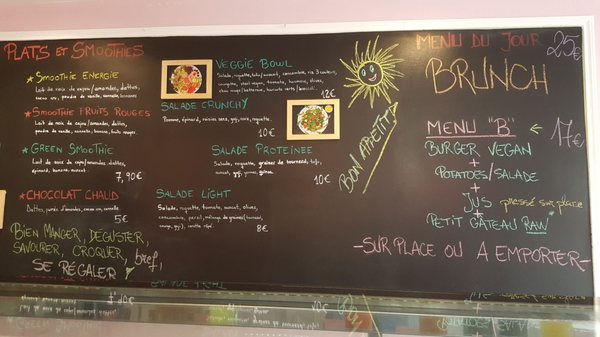 PLATS ET SMOOTHIES
SMOOTHIE ENERGIE
Lait de noix de cajou/amandes, dattes,
poudre de vanille, cannelle, bananes
SMOOTHIE FRUITS ROUGES
Lait de noix de cajou/amandes, dattes,
poudre de vanille, cannelle, banane, fruits rouges.
GREEN SMOOTHIE
Lait de noix de cajou/amandes, dattes,
épinard, banane, avocat.
7,90€
CHOCOLAT CHAUD
Dattes, purée d'amandes, cacao cru, cannelle.
5€
BIEN MANGER, DÉGUSTER,
SAVOURER, CROQUER, bref,
SE RÉGALER
VEGGIE BOWL
Salade, roquette, tofu/avocat, concombre, riz 3 couleurs,
courgette, tomate, houmous, olives,
12€
SALADE CRUNCHY
Pomme, épinard, raisins secs, goji, noix, roquette.
10€
SALADE PROTEINEE
Salade, roquette, graines de tournesol, tofu,
avocat, goji,
10€
SALADE LIGHT
Salade, roquette, tomate, avocat, olives,
concombre, persil, mélange de graines (tournesol,
courge, goji, carotte râpée.
8€
BON APPÉTIT
MENU DU JOUR
25€
BRUNCH
MENU "B" ← 17€
BURGER VEGAN
+
POTATOES/SALADE
+
JUS pressé sur place
+
PETIT GÂTEAU RAW
-SUR PLACE OU A EMPORTER-